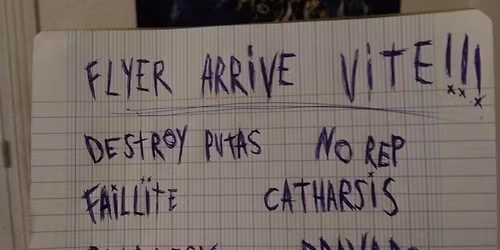 FLYER ARRIVE ViTE!!!
DESTROY PUTAS NO REP
FAiLLiTE CATHARSiS